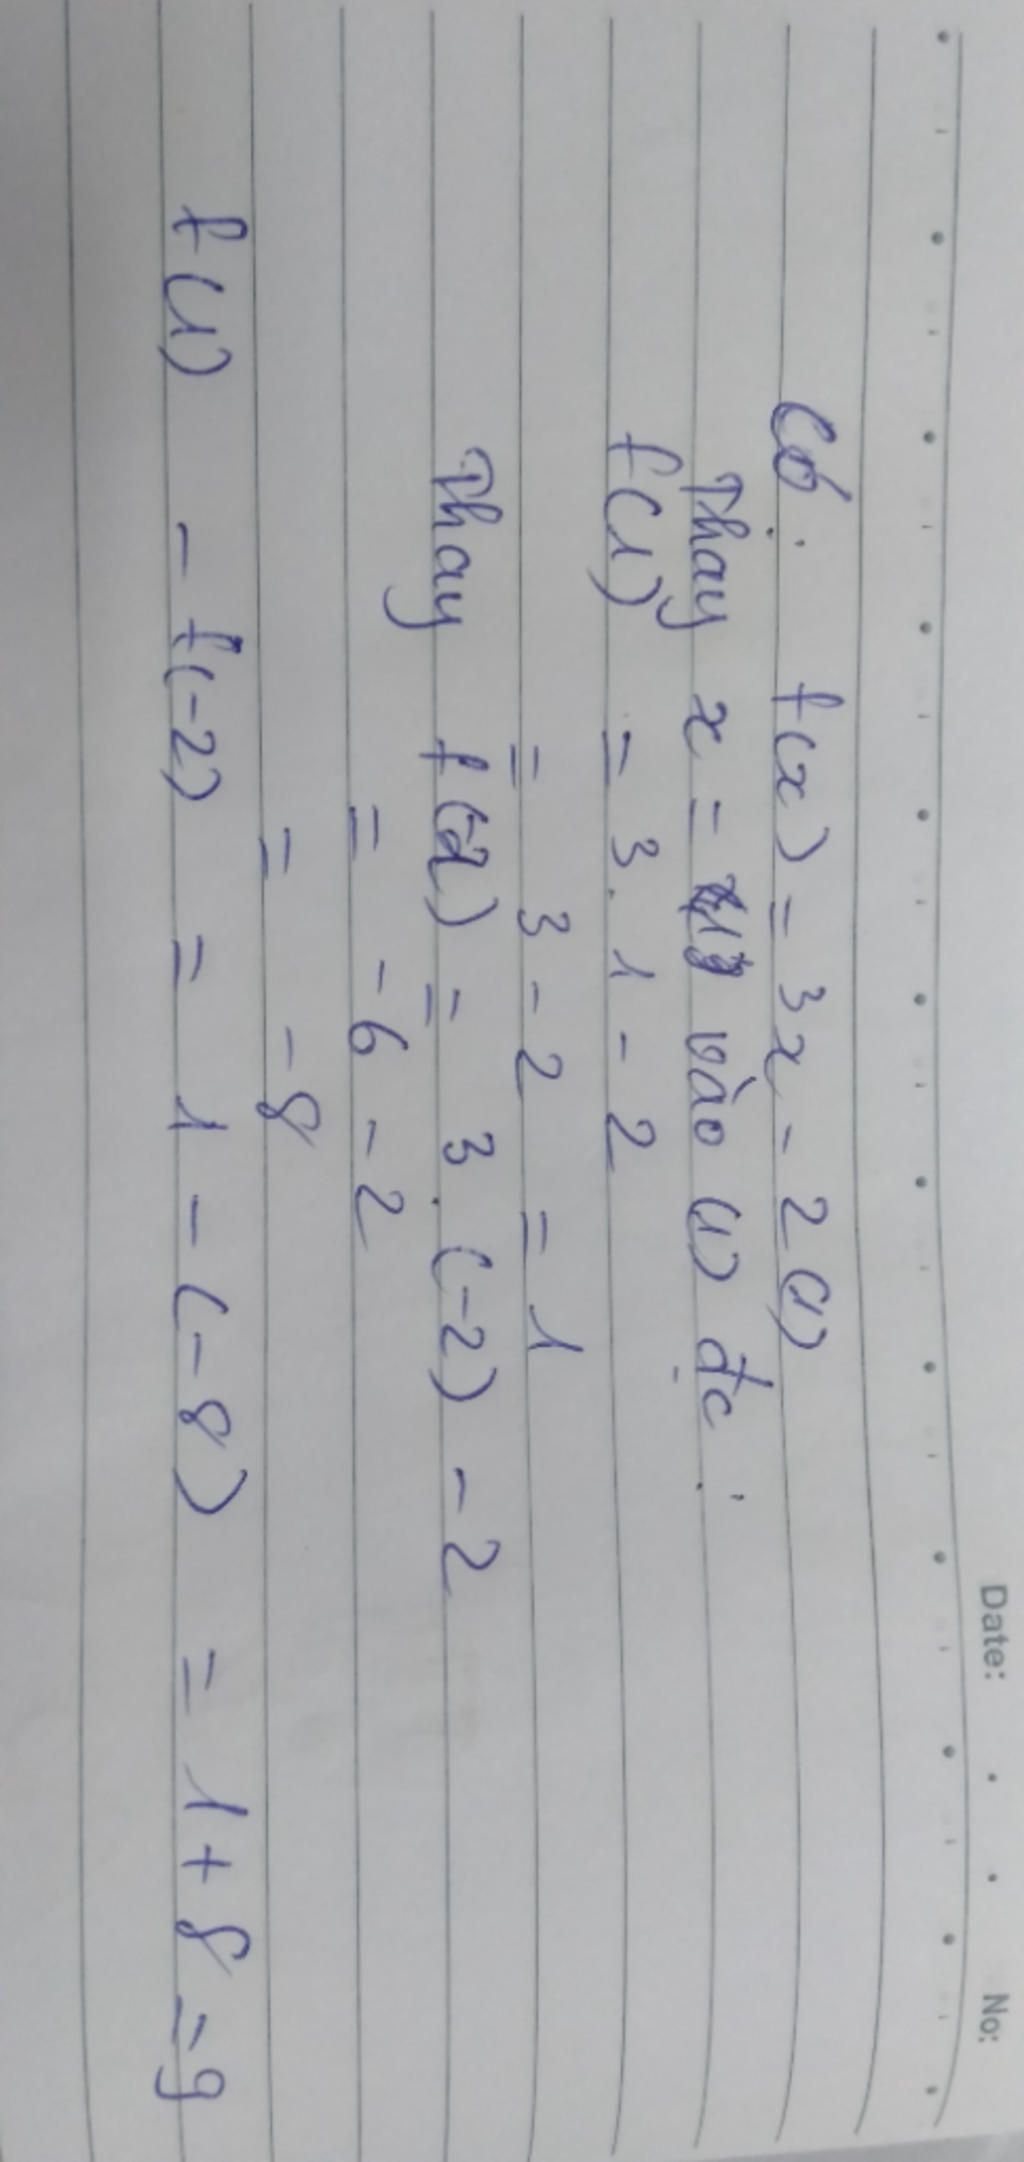 Date: No:
Có: f(x) = 3x - 2 (1)
Thay x = 1 vào (1) đc:
f(1) = 3. 1 - 2
= 3 - 2 = 1
Thay f(-2) = 3. (-2) - 2
= -6 - 2
= -8
f(1) - f(-2) = 1 - (-8) = 1 + 8 = 9